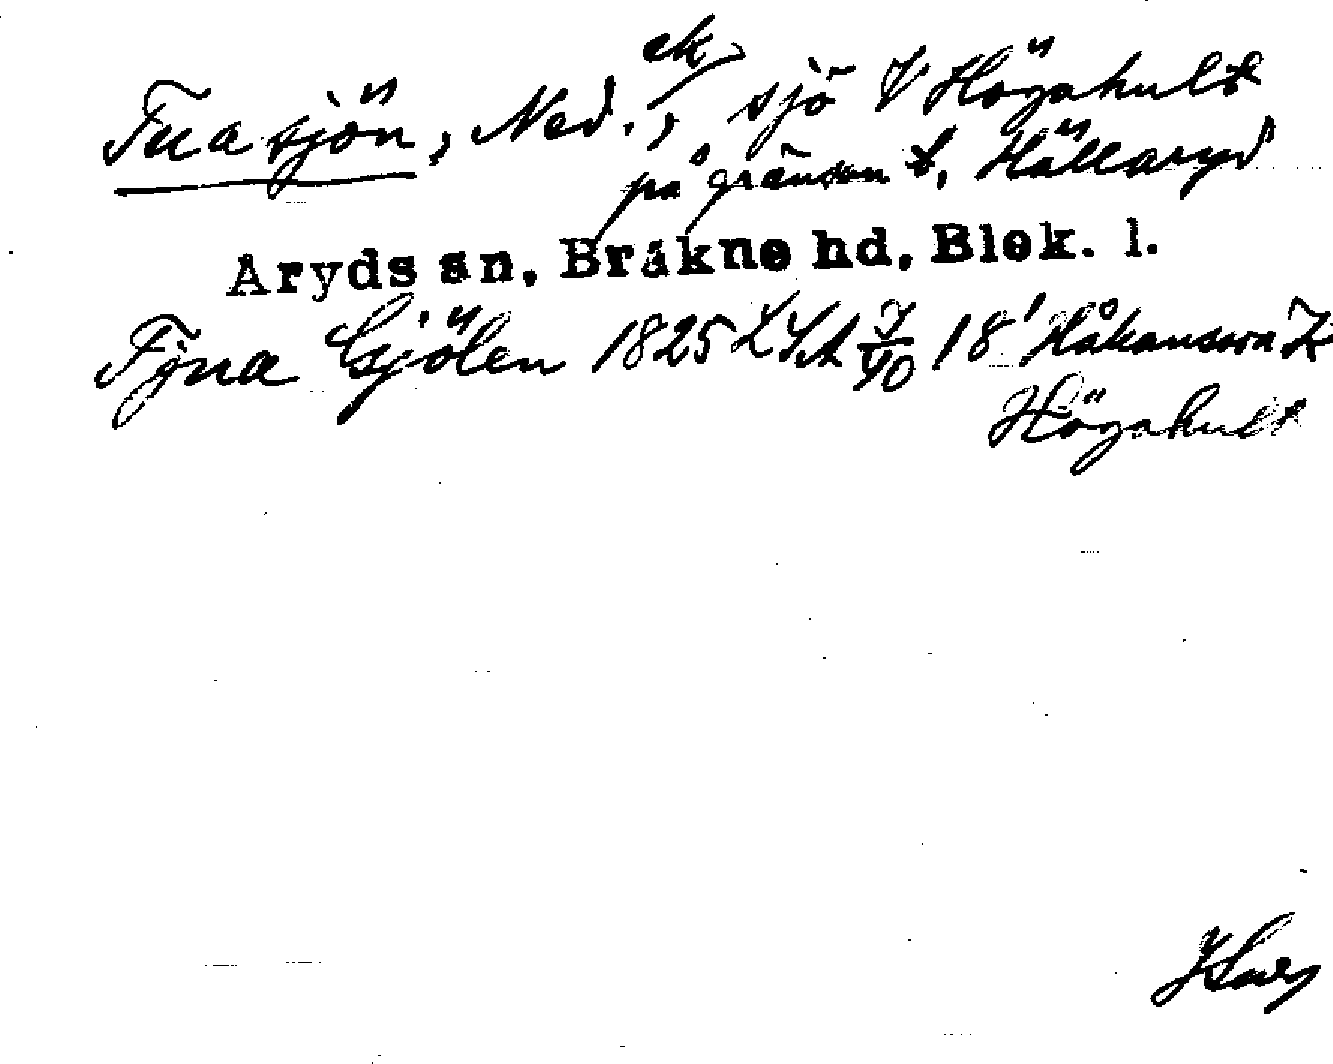 Tuasjön, Ned. ek, sjö V Högahult
på gränsen t. Hällaryd
Aryds sn, Bräkne hd, Blek. l.
Tyna Gjölen 1825 LSA 18' Håkansson
Högahult